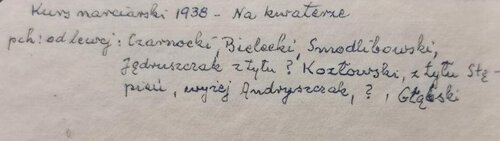 Kurs narciarski 1938 - Na kwaterze
pch: od lewej: Czarnocki, Bielecki, Smodlibowski,
Jędruszczak z tyłu ? Kozłowski, z tyłu Stę-
pień, wyżej Andryszczak, ?, Głąbski